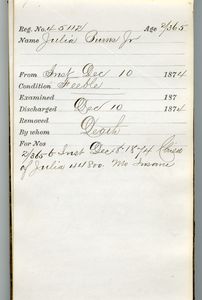 Reg. No. 45112 Age 2/365
Name Julia Burns Jr
From Inst Dec 10 1874
Condition Feeble
Examined 187
Discharged Dec 10 1874
Removed
By whom Death
For Nos
2/365 Inst Dec 8 1874
of Julia 44800. Mo Insane